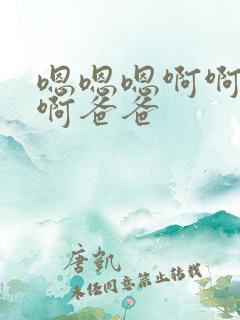 嗯嗯嗯啊啊
啊爸爸
唐凯
未经同意禁止转载